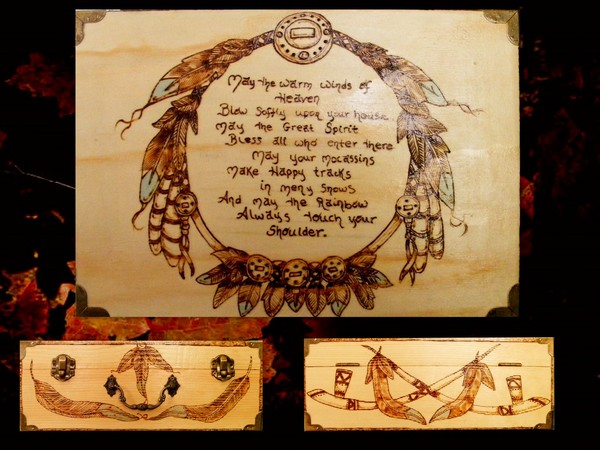 May the warm winds of
Heaven
Blow Softly upon your house
May the Great Spirit
Bless all who enter there
May your mocassins
Make Happy tracks
in meny Snows
And may the Rainbow
Always touch your
Shoulder.